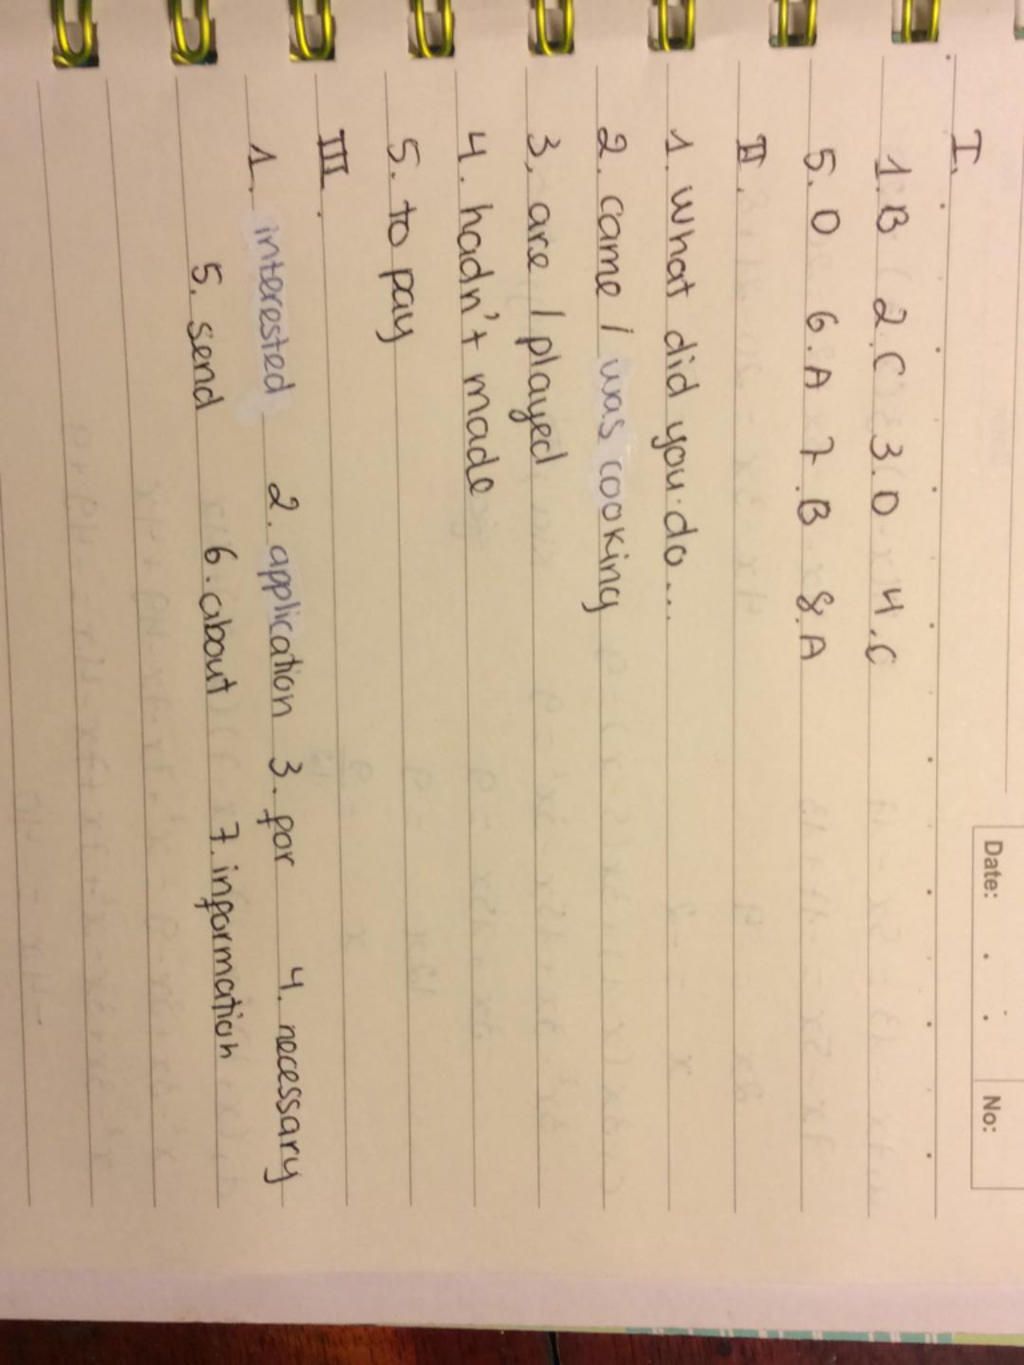 Date: . . No:
I.
1.B 2.C 3.D 4.C
5.D 6.A 7.B 8.A
II.
1. What did you do...
2. came / was cooking
3. are / played
4. hadn't made
5. to pay
III.
1. interested 2. application 3. for 4. necessary
5. send 6. about 7. information